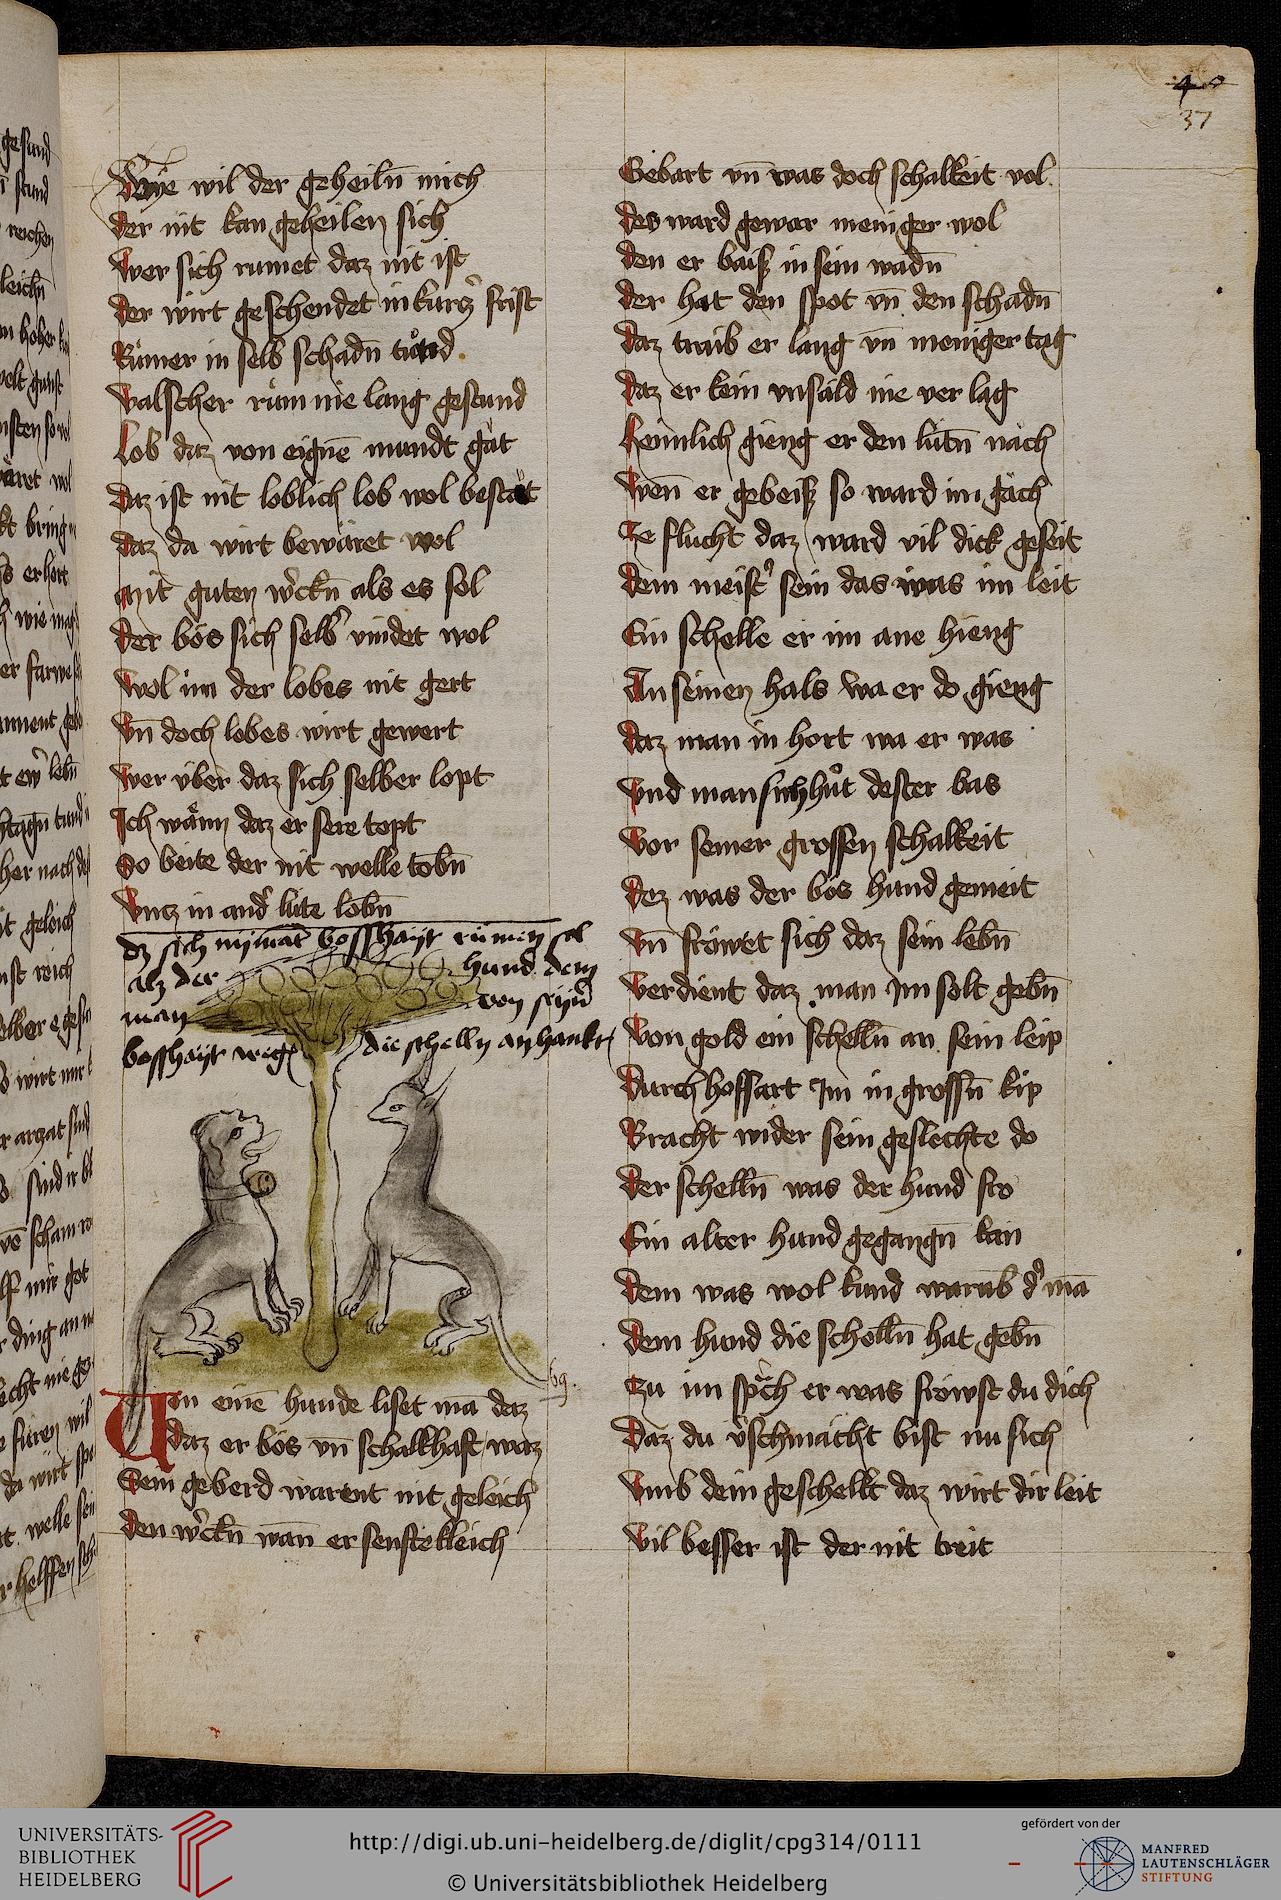 40
37
Wye wil der geheiln̄ mich
der nit kan geheilen sich
wer sich rumet daz nit ist
der wirt geschendet in kurcz̾ frist
Růmer in selb schadn̄ tůnd
valscher rům nie lang gestund
Lob daz von eignē mundt gǎt
daz ist nit loblich lob wol bestǎt
daz da wirt bewäret wol
mit guten w̾ckn̄ als es sol
der bös sich selb̾ vindet wol
wol im der lobes nit gert
vn̄ doch lobes wirt gewert
wer über daz sich selber lopt
Ich wän daz er sere topt
So beite der nit welle tobn̄
vncz in and̾ lüte lobn̄
dz sich nymāt bosshayt rümen sol
alz der hund dem
man von seyn̾
bosshayt wegē die schelln anhankt
Von einē hunde liset mā daz
daz er bös vn̄ schalkhaft waz
Sein geberd warent nit geleich
den w̾ckn̄ wan̄ er senftekleich
69.
Gebart vn̄ was doch schalkeit vol
des ward gewar meniger wol
den er baiß in sein wadn̄
der hat den spot vn̄ den schadn̄
daz traib er lang vn̄ meniger tag
daz er kein vnsäld nie ver lag
heimlich gieng er den lütn̄ näch
wen̄ er gebeiß so ward im gäch
Ze flucht daz ward vil dick geseit
dem meist̾ sein das was im leit
Ein schelle er im ane hieng
An seinen hals wa er do gieng
daz man in hort wa er was
vnd man sich hůt dester bas
vor seiner grossen schalkeit
dez was der bös hund gemeit
vn̄ fröwet sich daz sein lebn̄
verdient daz man Im solt gebn̄
von gold ein schelln̄ an sein leip
durch hoffart Im in grossn̄ kip
Bracht wider sein geslechte do
der schelln̄ was der hund fro
Ein alter hund gegangn̄ kan
dem was wol kund warūb d̾ mā
dem hund die schelln̄ hat gebn̄
Zu im sp̾ch er was fröwst du dich
daz du v̾schmächt bist nu sich
vmb dein geschelle daz wirt dir leit
vil besser ist der nit treit
UNIVERSITÄTS-
BIBLIOTHEK
HEIDELBERG
http://digi.ub.uni-heidelberg.de/diglit/cpg314/0111
© Universitätsbibliothek Heidelberg
gefördert von der
MANFRED
LAUTENSCHLÄGER
STIFTUNG